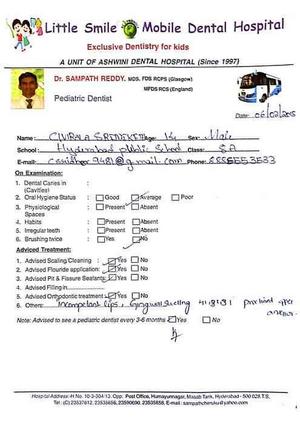 Little Smile Mobile Dental Hospital
Exclusive Dentistry for kids
A UNIT OF ASHWINI DENTAL HOSPITAL (Since 1997)
Dr. SAMPATH REDDY, MDS, FDS RCPS (Glasgow)
MFDS RCS (England)
Pediatric Dentist
Date:
Name: Age: 14 Sex: Male
School: Hyderabad Public School Class:
E-mail: @gmail.com Phone: 8886553533
On Examination:
1. Dental Caries in (Cavities)
2. Oral Hygiene Status : Good Average Poor
3. Physiological Spaces : Present Absent
4. Habits : Present Absent
5. Irregular teeth : Present Absent
6. Brushing twice : Yes No
Adviced Treatment:
1. Advised Scaling/Cleaning : Yes No
2. Advised Flouride application: Yes No
3. Advised Pit & Fissure Sealants: Yes No
4. Advised Filling in
5. Advised Orthodontic treatment: Yes No
6. Others: Incompetent lips,
Note: Advised to see a pediatric dentist every 3-6 months Yes No
Hospital Address: H No. 10-3-304/13, Opp. Post Office, Humayunnagar, Masab Tank, Hyderabad - 500 028 T.S.
Tel: (C) 23537612, 23535656, 23590690, 23535688, E-mail: sampathcheruku@yahoo.com